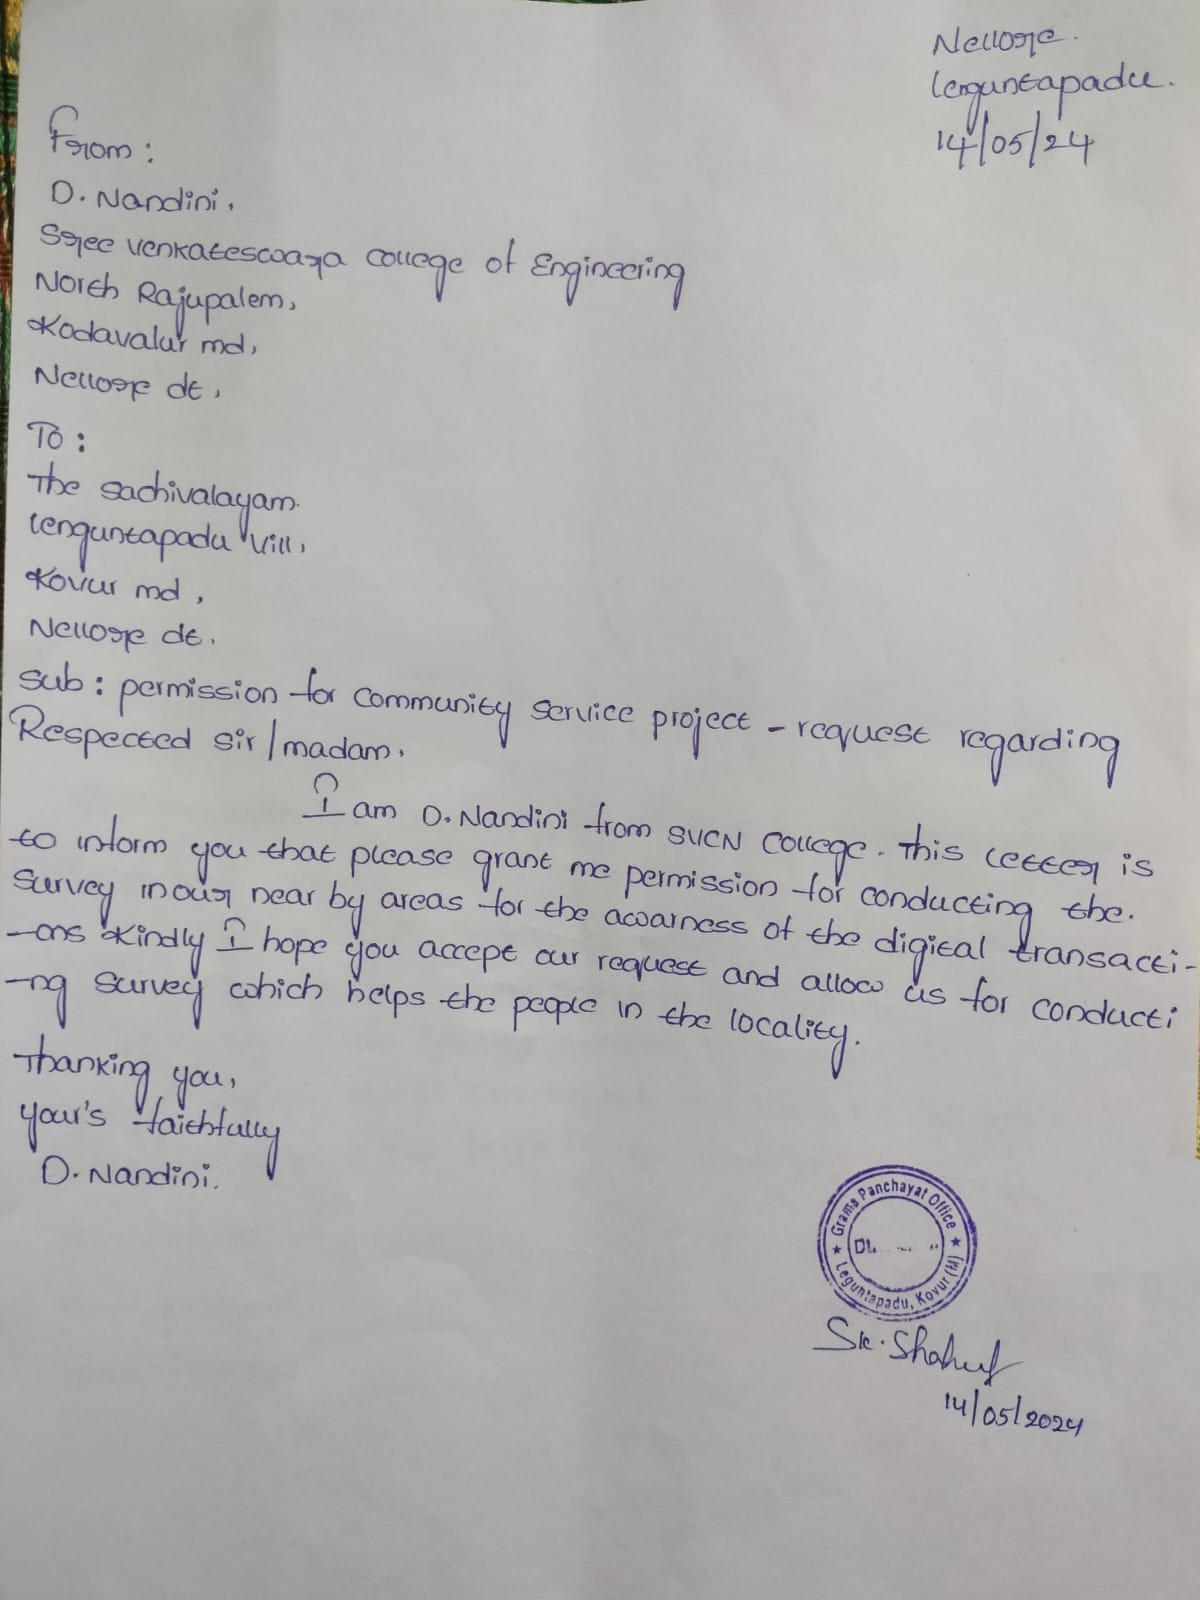 Nellore.
Lenguntapadu.
14/05/24
From:
D. Nandini,
Sree Venkateswara College of Engineering
North Rajupalem,
Kodavalur md,
Nellore dt,
To:
The Sachivalayam.
Lenguntapadu Vill,
Kovur md,
Nellore dt.
Sub: permission for community service project - request regarding
Respected sir/madam.
I am D. Nandini from SVCN College. This letter is
to inform you that please grant me permission for conducting the.
Survey in our near by areas for the awarness of the digital transacti-
-ons kindly I hope you accept our request and allow us for conducti
-ng Survey which helps the people in the locality.
Thanking you,
your's faithfully
D. Nandini.
★ Grama Panchayat Office ★
Leguntapadu, Kovur (M)
Sk.
14/05/2024